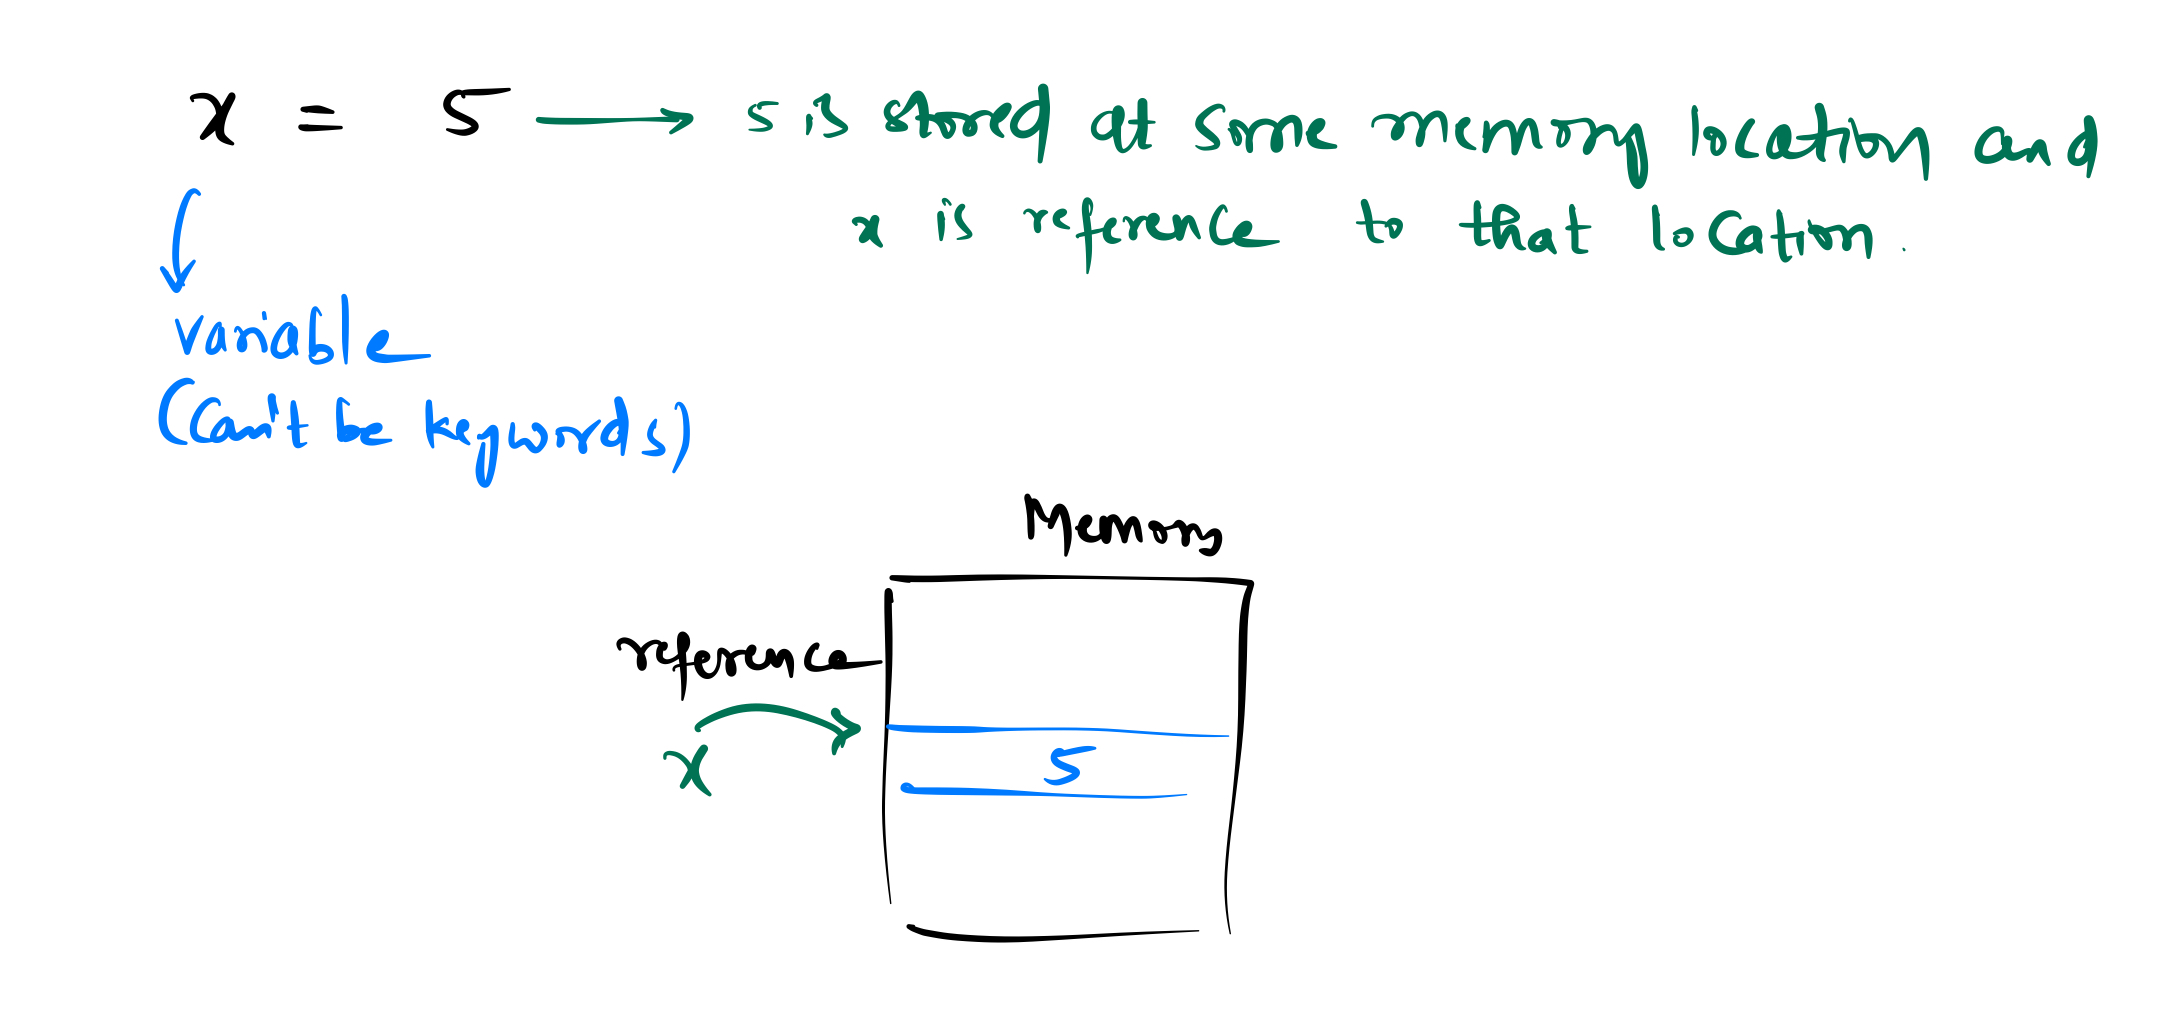 x = 5 → 5 is stored at some memory location and
x is reference to that location.
variable
(can't be keywords)
Memory
reference
x
5